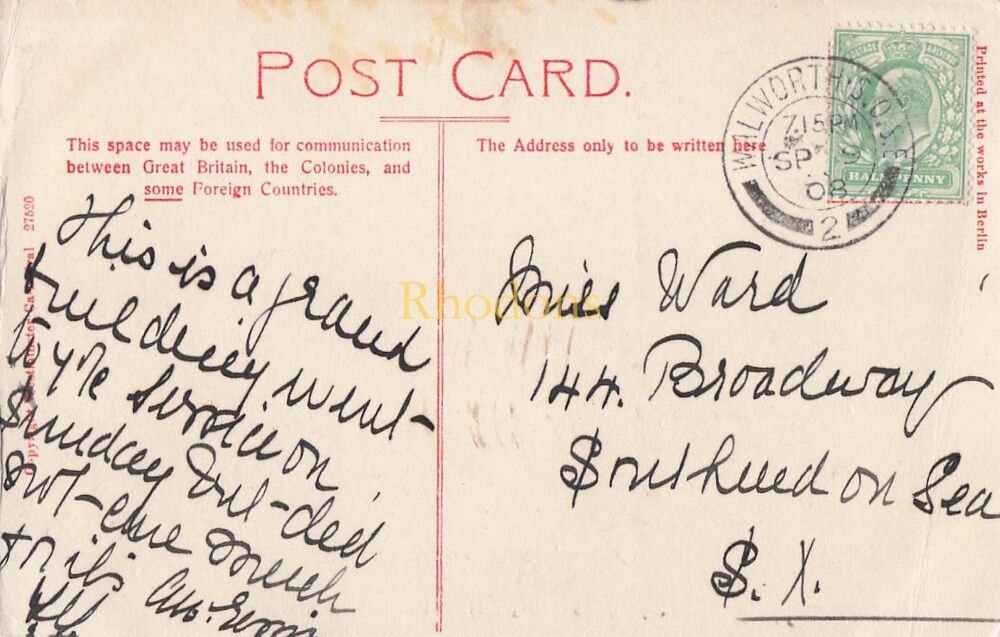 POST CARD.
This space may be used for communication
between Great Britain, the Colonies, and
some Foreign Countries.
The Address only to be written here
Printed at the works in Berlin
27520
WALWORTH·S.O.S.E
7.15 PM
SP 9
08
2
POSTAGE REVENUE
HALFPENNY
Rhodons
This is a grand
building went
to the Service on
Sunday but did
not care much
for it
Miss Ward
144. Broadway
Southend on Sea
S.X.